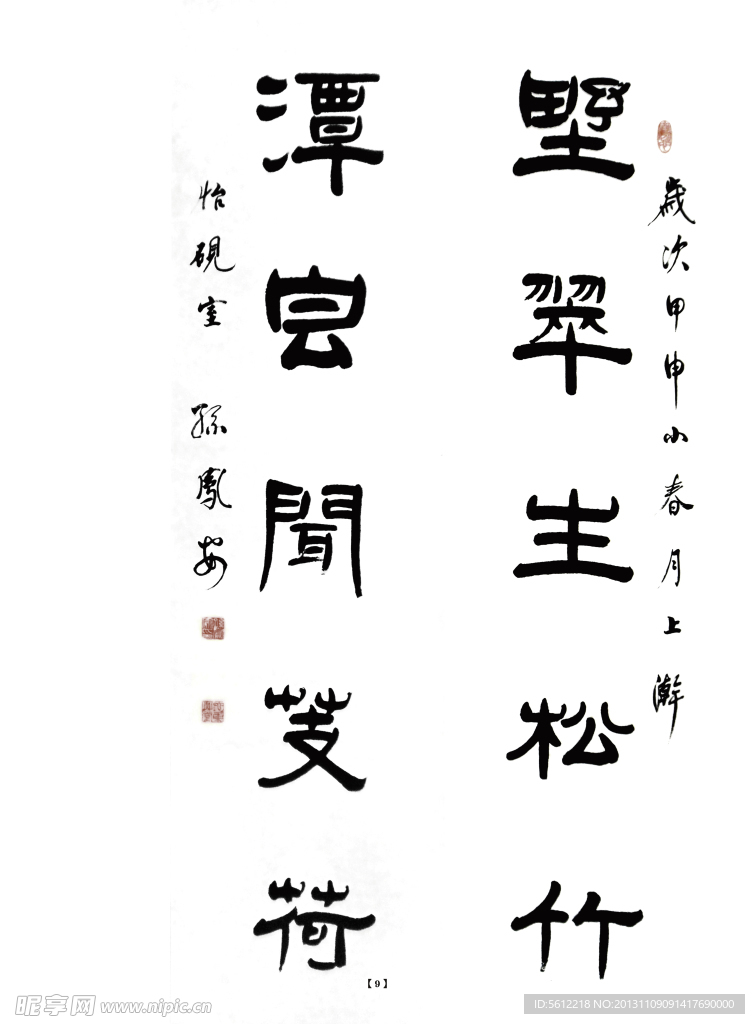 歲次甲申小春月上澣
野翠生松竹
潭香聞芰荷
怡硯室 孫鳳安
【9】
昵享网 www.nipic.cn
ID:5612218 NO:20131109091417690000